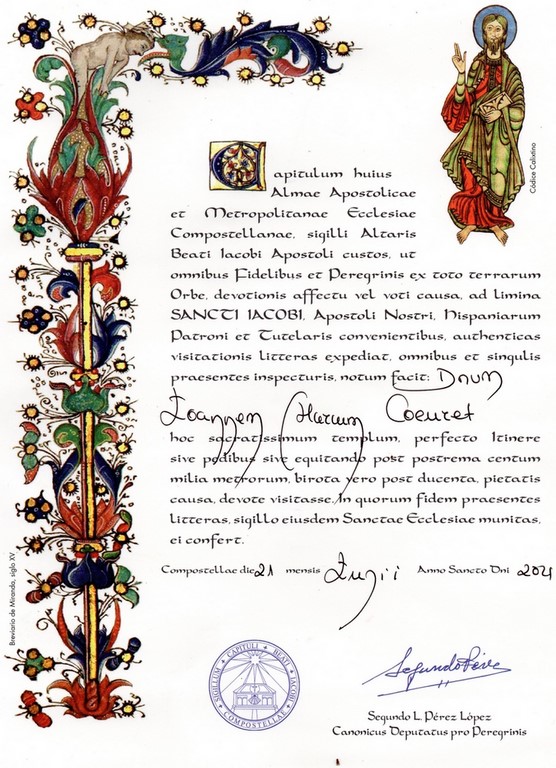 Códice Calixtino
Capitulum huius
Almae Apostolicae
et Metropolitanae Ecclesiae
Compostellanae, sigilli Altaris
Beati Iacobi Apostoli custos, ut
omnibus Fidelibus et Peregrinis ex toto terrarum
Orbe, devotionis affectu vel voti causa, ad limina
SANCTI IACOBI, Apostoli Nostri, Hispaniarum
Patroni et Tutelaris convenientibus, authenticas
visitationis litteras expediat, omnibus et singulis
praesentes inspecturis, notum facit: Dnum
Ioannem Coeuret
hoc sacratissimum templum, perfecto Itinere
sive pedibus sive equitando post postrema centum
milia metrorum, birota vero post ducenta, pietatis
causa, devote visitasse. In quorum fidem praesentes
litteras, sigillo eiusdem Sanctae Ecclesiae munitas,
ei confert.
Compostellae die 21 mensis Anno Sancto Dni 2021
Breviario de Miranda, siglo XV
SIGILLUM CAPITULI BEATI IACOBI COMPOSTELLAE
Segundo Pérez
Segundo L. Pérez López
Canonicus Deputatus pro Peregrinis